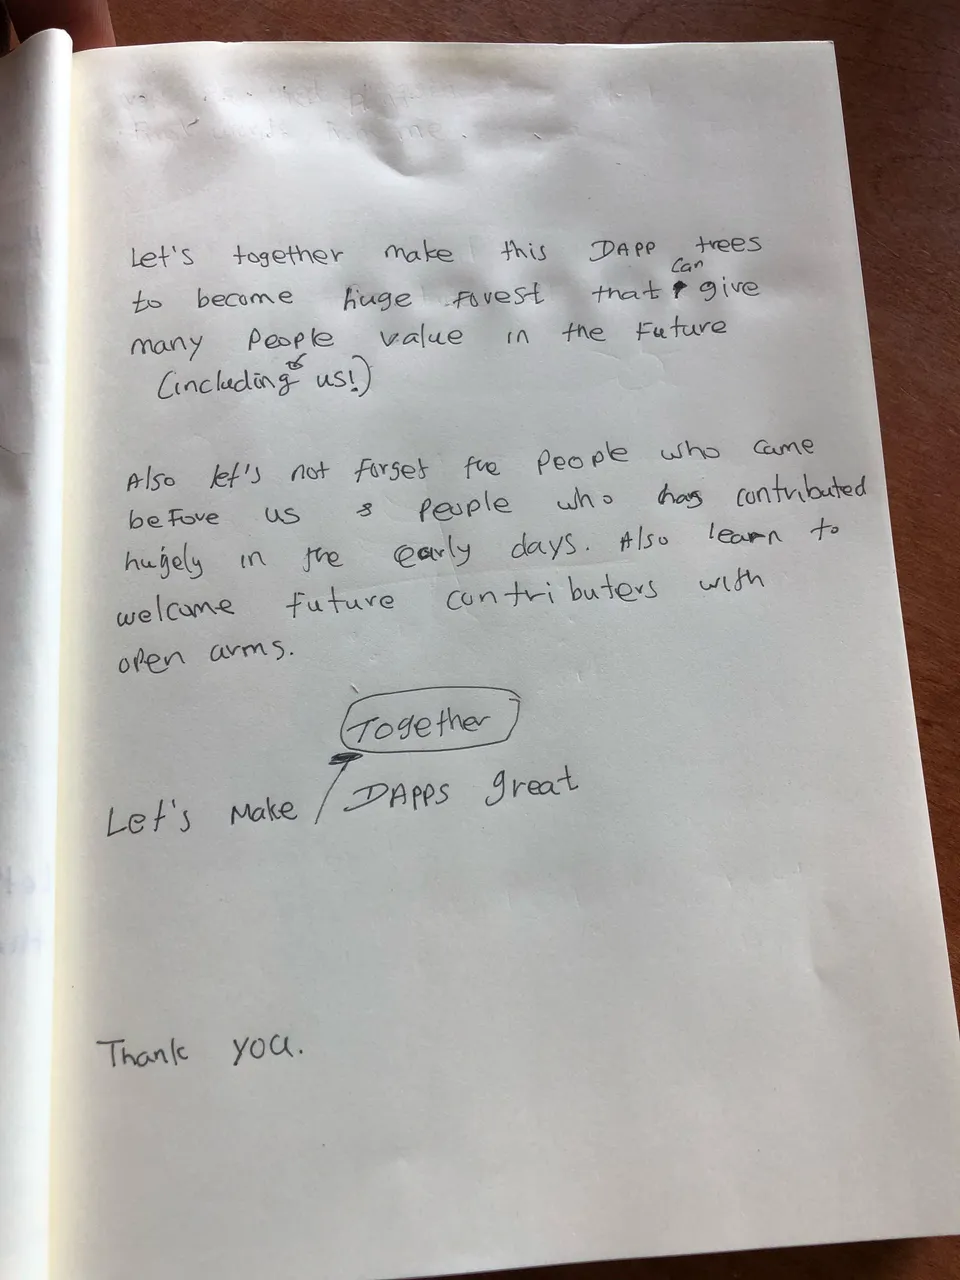 Let's together make this DAPP trees
to become huge forest that can give
many people value in the future
(including us!)
Also let's not forget the people who came
before us & people who has contributed
hugely in the early days. Also learn to
welcome future contributers with
open arms.
Together
Let's Make DAPPS great
Thank you.